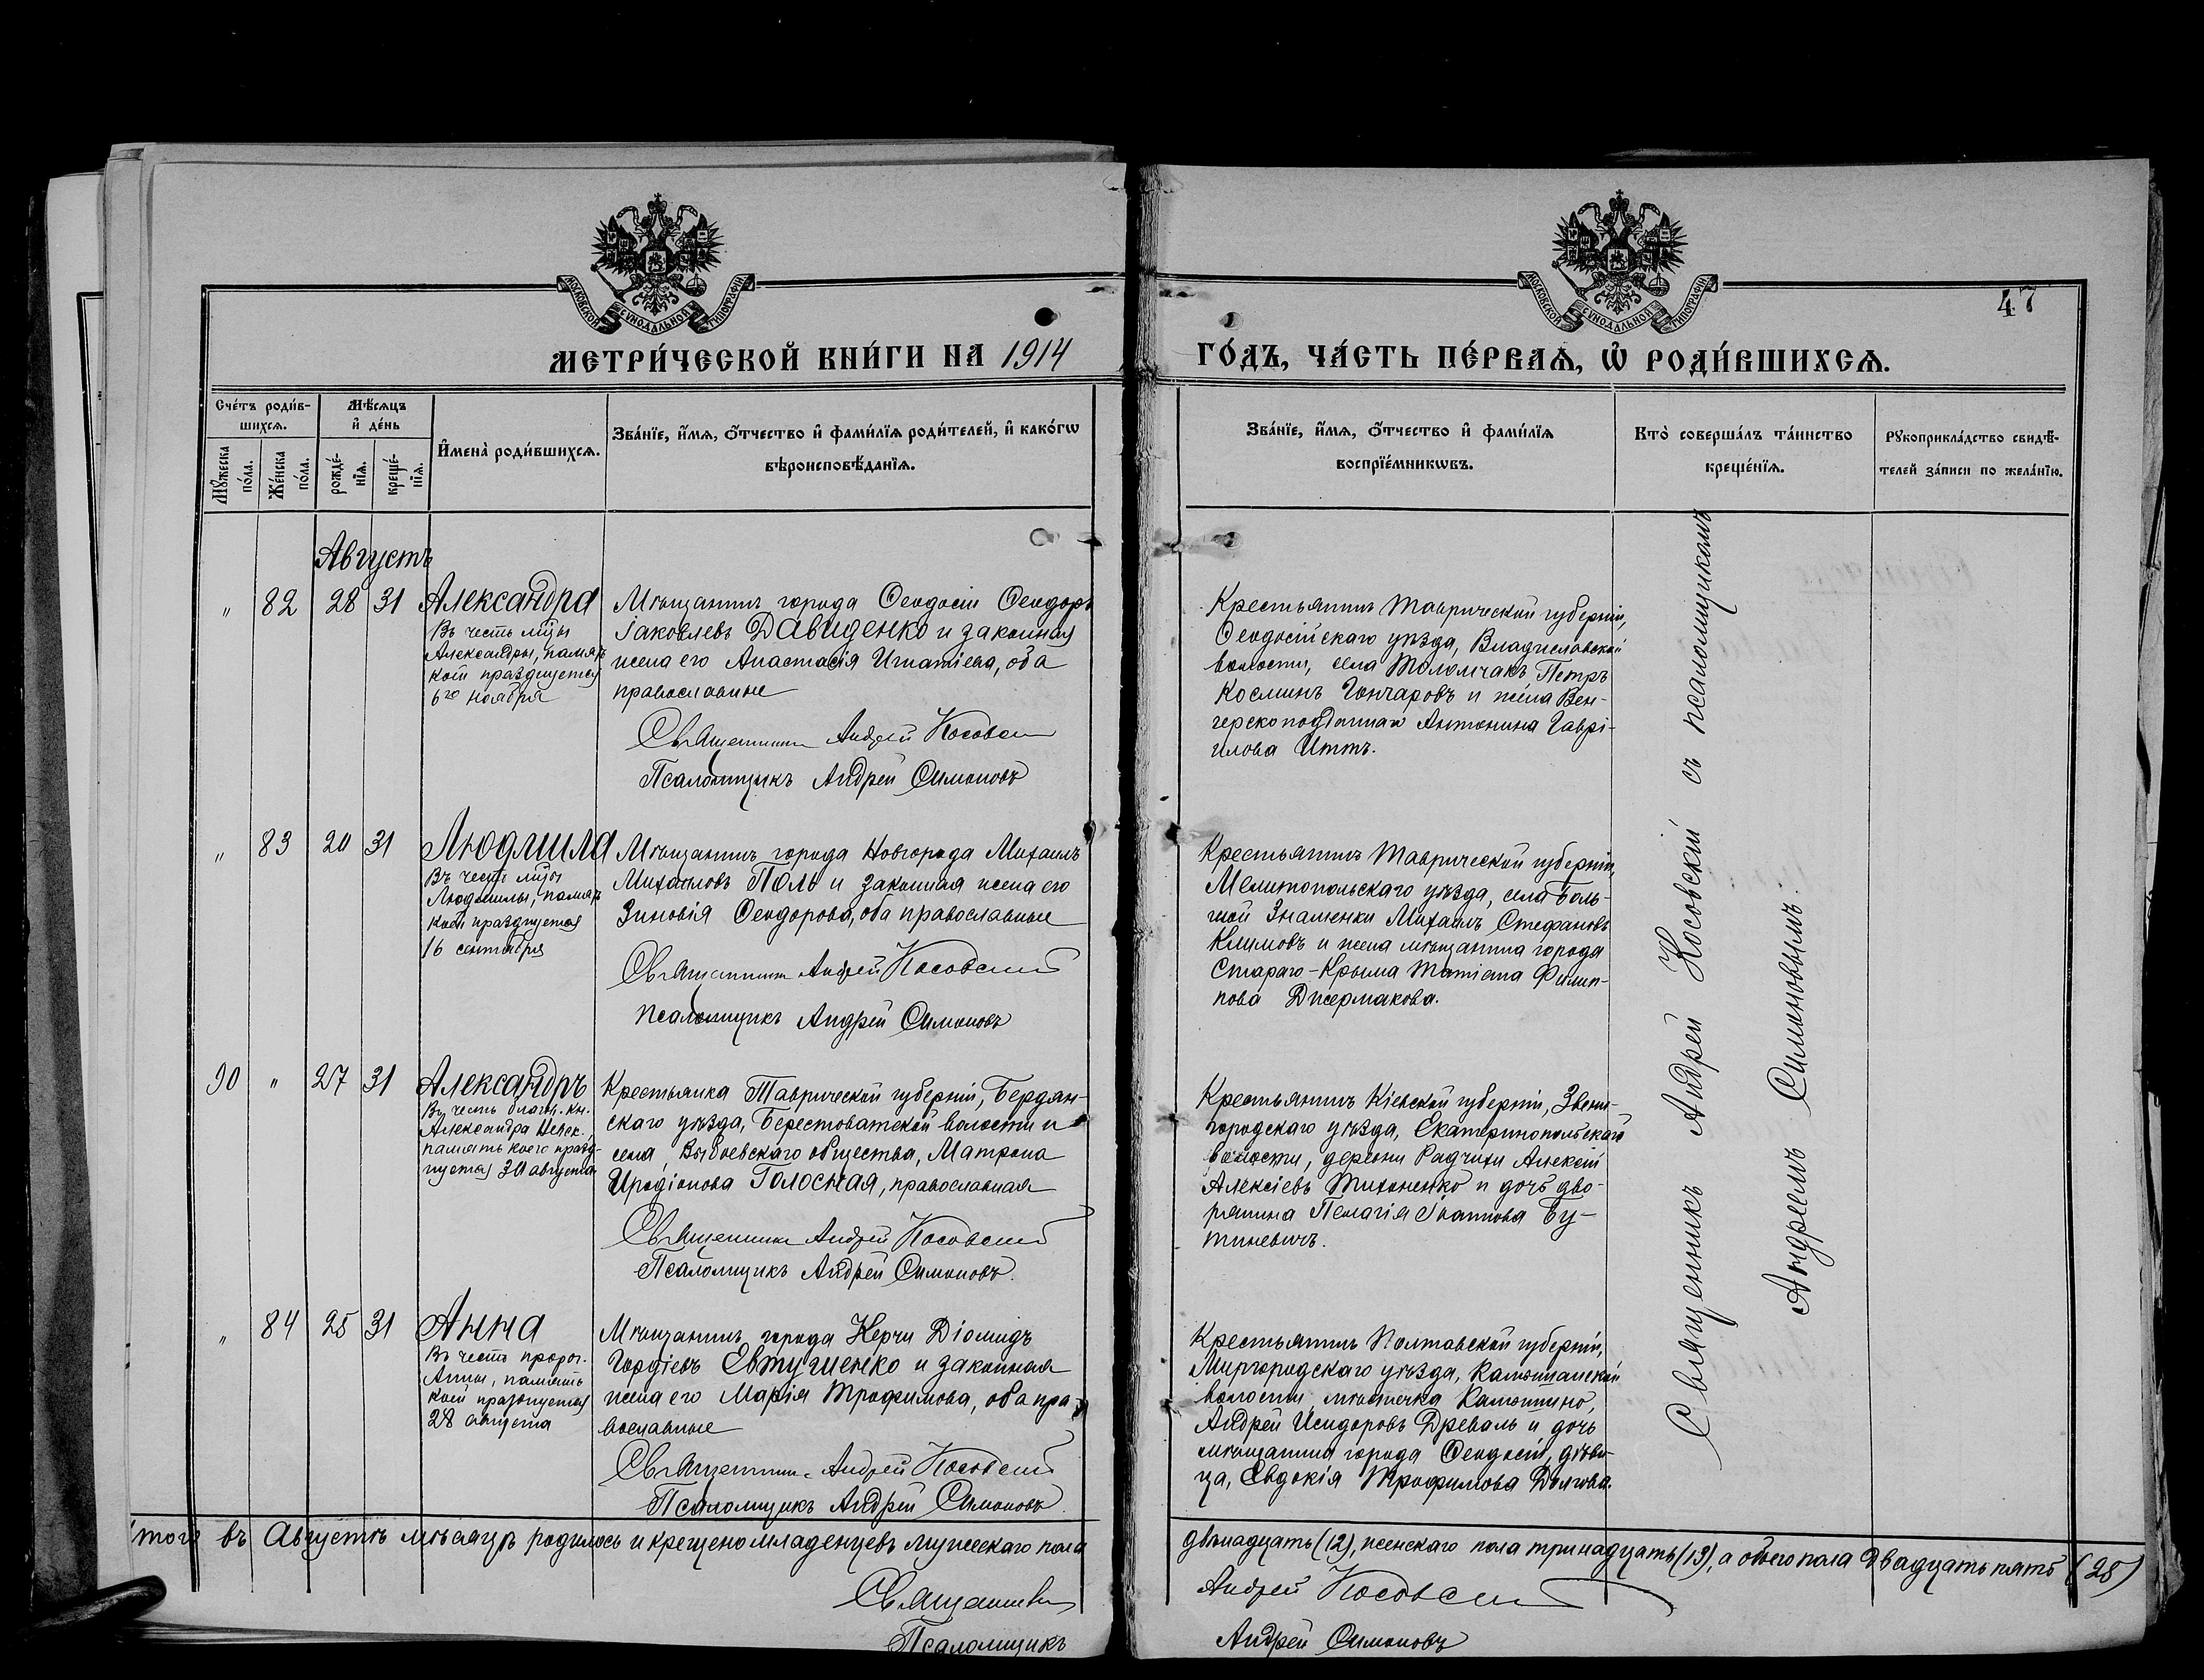 МОСКОВСКОЙ СѴНОДАЛЬНОЙ ТИПОГРАФІИ
МЕТРИ́ЧЕСКОЙ КНИ́ГИ НА 1914
Сче́тъ роди́в-
шихсѧ.
Мѣ́сѧцъ
и҆ де́нь
И҆мена̀ роди́вшихсѧ.
Зва́нїе, и҆́мѧ, ѻ҆́тчество и҆ фами́лїѧ роди́телей, и҆ како́гѡ
вѣроисповѣ́данїѧ.
Мꙋ́жеска
по́ла.
Же́нска
по́ла.
рожде́-
нїѧ.
креще́-
нїѧ.
Августъ
" 82 28 31 Александра
Въ честь мцы
Александры, память
коей празднуется
6го ноября
Мѣщанинъ города Ѳеодосіи Ѳеодоръ
Іаковлевъ Давиденко и законная
жена его Анастасія Игнатіева, оба
православные
Священникъ Андрей Косовский
Псаломщикъ Андрей Симоновъ
" 83 20 31 Людмила
Въ честь мцы
Людмилы, память
коей празднуется
16 сентября
Мѣщанинъ города Новгорода Михаилъ
Михаиловъ Поль и законная жена его
Зиновія Ѳеодорова, оба православные
Священникъ Андрей Косовский
Псаломщикъ Андрей Симоновъ
90 " 27 31 Александръ
Въ честь благов. кн.
Александра Невск.
память коего празд-
нуется 30 августа
Крестьянка Таврической губерніи, Бердян-
скаго уѣзда, Берестоватской волости и
села, общества, Матрона
Иродіонова Голосная, православная
Священникъ Андрей Косовский
Псаломщикъ Андрей Симоновъ.
" 84 25 31 Анна
Въ честь пророч.
Анны, память
коей празднуется
28 августа
Мѣщанинъ города Керчи Діомидъ
Гордіевъ Евтушенко и законная
жена его Марія Трофимова, оба пра-
вославные
Священникъ Андрей Косовский
Псаломщикъ Андрей Симоновъ.
того въ Августѣ мѣсяцѣ родилось и крещено младенцевъ мужескаго пола
Священникъ
Псаломщикъ
МОСКОВСКОЙ СѴНОДАЛЬНОЙ ТИПОГРАФІИ
47
ГО́ДЪ, ЧА́СТЬ ПЕ́РВАѦ, Ѽ РОДИ́ВШИХСѦ.
Зва́нїе, и҆́мѧ, ѻ҆́тчество и҆ фами́лїѧ
воспрїе́мникѡвъ.
Кто̀ соверша́лъ та́инство
креще́нїѧ.
Рꙋкоприкла́дство свидѣ́-
телей за́писи по жела́нїю.
Крестьянинъ Таврической губерніи,
Ѳеодосійскаго уѣзда, Владиславской
волости, села Толомчакъ Петръ
Косминъ Гончаровъ и жена Вен-
герско подданнаго Антонина Гаврі-
илова Иттъ.
Крестьянинъ Таврической губерніи,
Мелитопольскаго уѣзда, села Боль-
шой Знаменки Михаилъ Стефановъ
Климовъ и жена мѣщанина города
Стараго-Крыма Татіана Филип-
пова Джермакова.
Крестьянинъ Кіевской губерніи, Звени-
городскаго уѣзда, Екатеринопольской
волости, деревни Радчихи Алексій
Алексіевъ Тихоненко и дочь дво-
рянина Пелагія Игнатова Бу-
тиневичъ.
Крестьянинъ Полтавской губерніи,
Миргородскаго уѣзда,
волости, мѣстечка
Андрей Исидоровъ Древаль и дочь
мѣщанина города Ѳеодосіи, дѣви-
ца, Евдокія Трофимова Долгова.
Священникъ Андрей Косовскій съ псаломщикомъ
Андреемъ Симоновымъ.
двѣнадцать (12), женскаго пола тринадцать (13), а обоего пола двадцать пять (25)
Андрей Косовский
Андрей Симоновъ